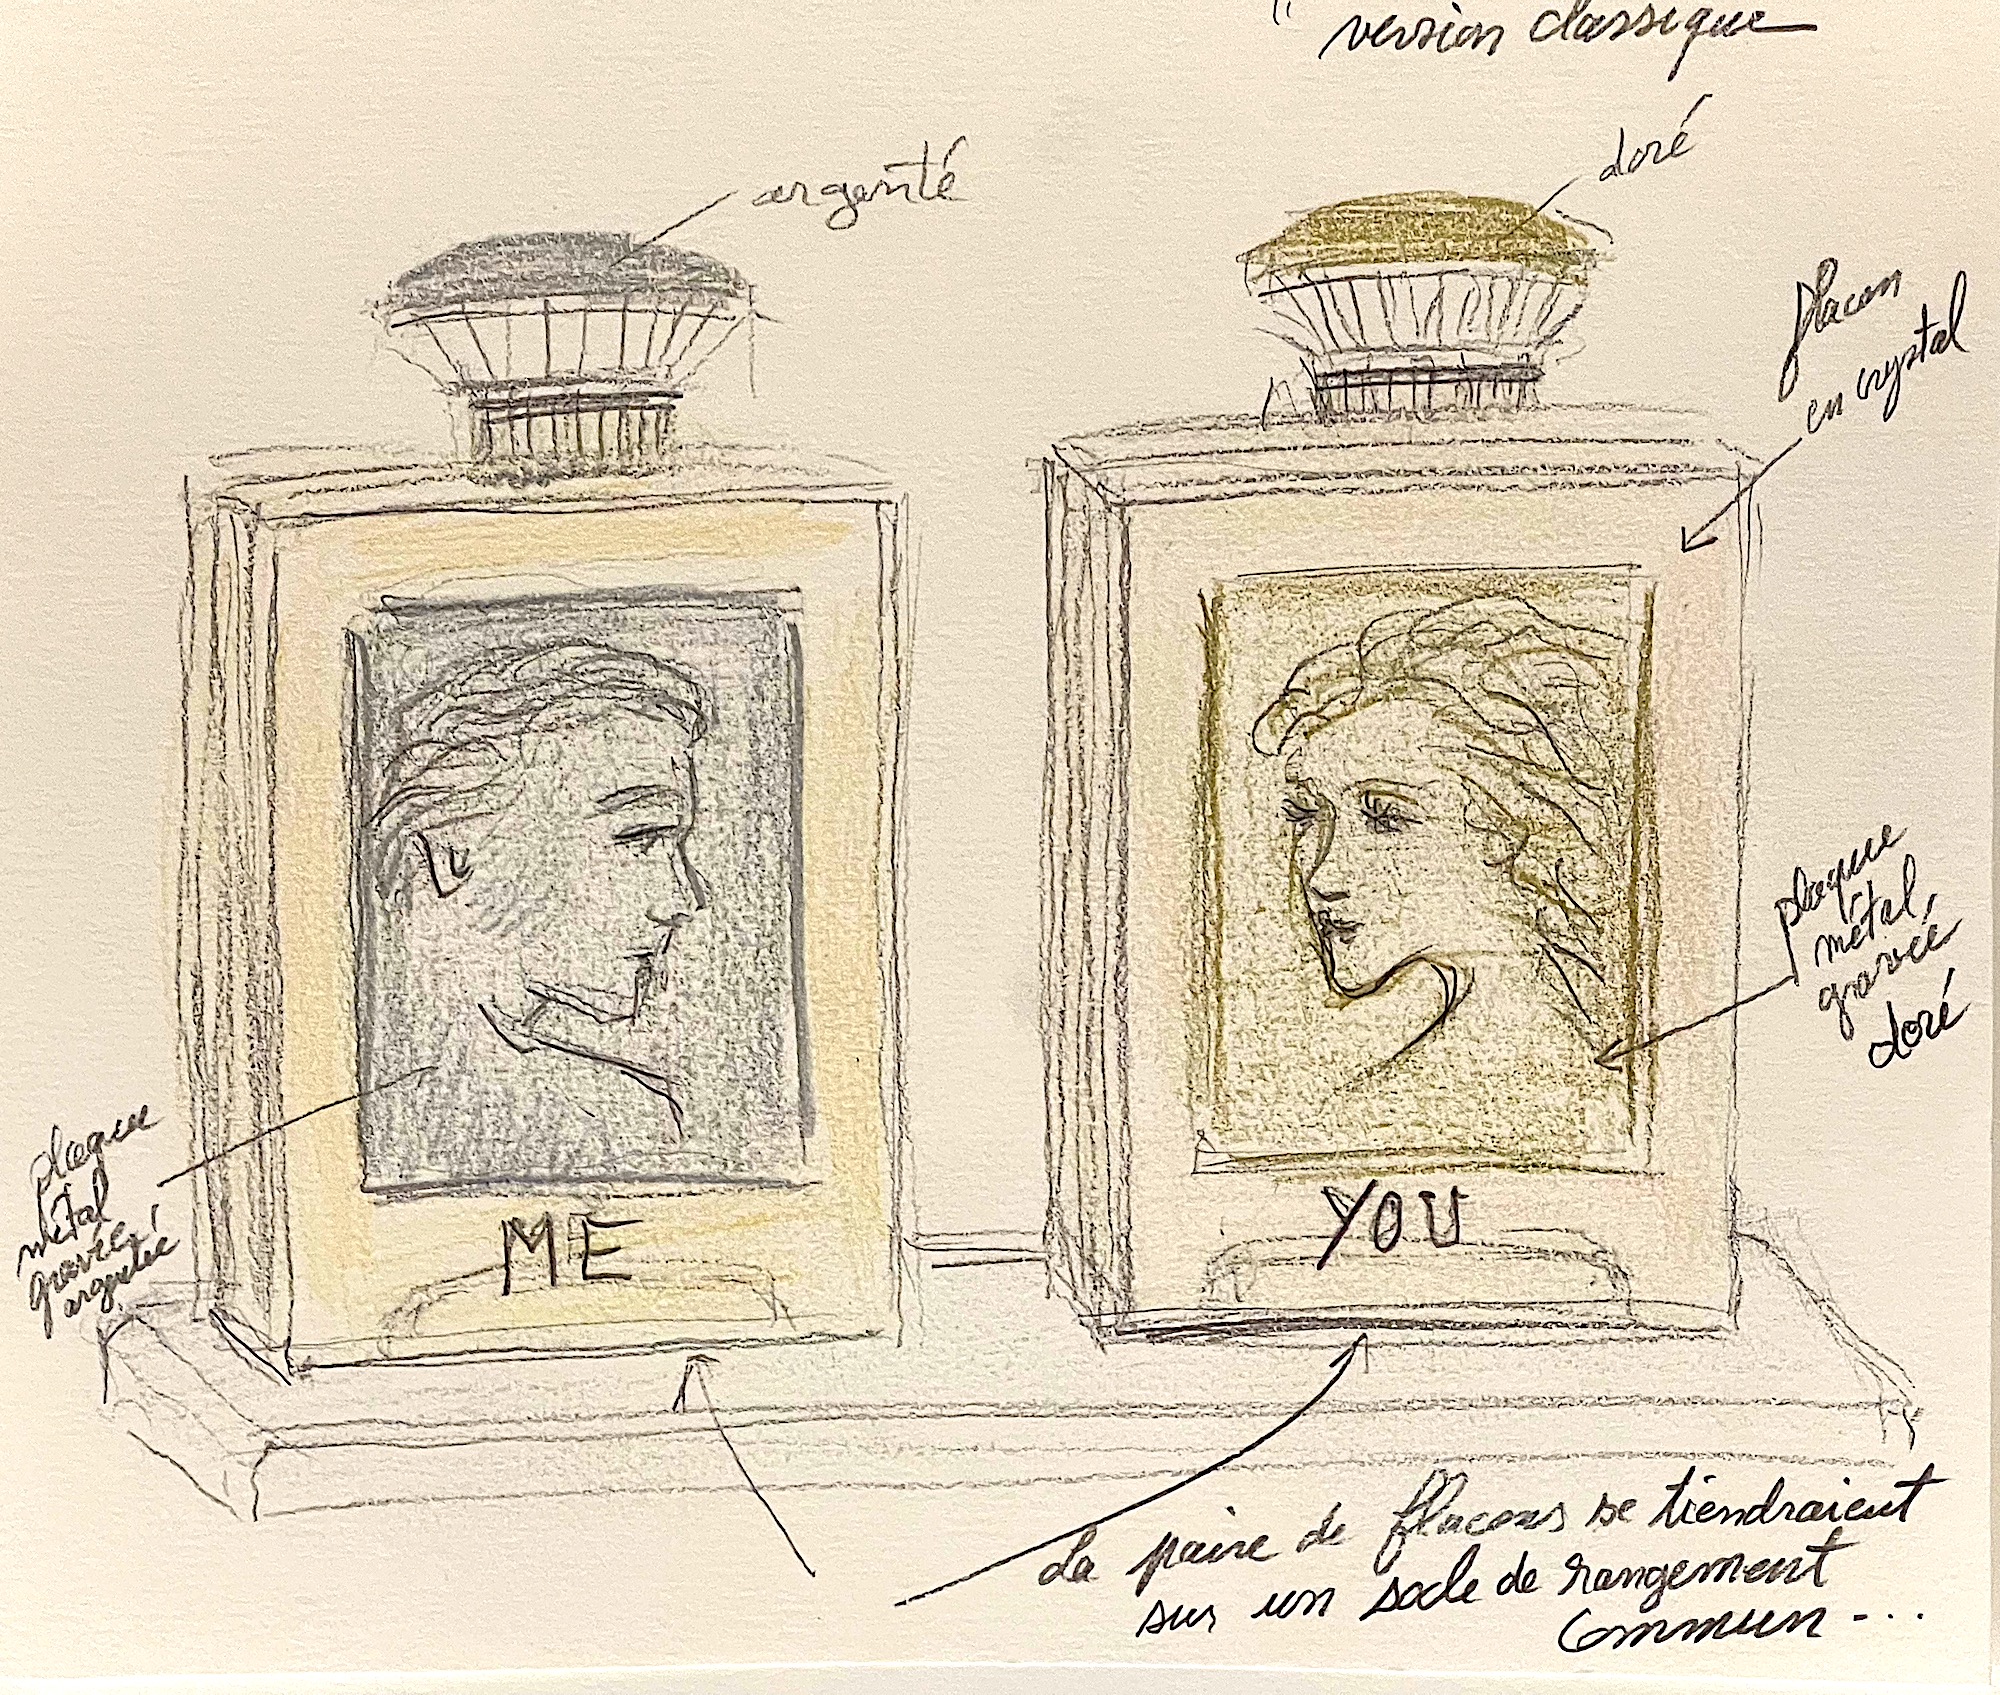 "
version classique
argenté
doré
flacon
en crystal
plaque
métal
gravée
doré
plaque
métal
gravée
argenté
ME
YOU
La paire de flacons se tiendraient
sur un socle de rangement
commun...